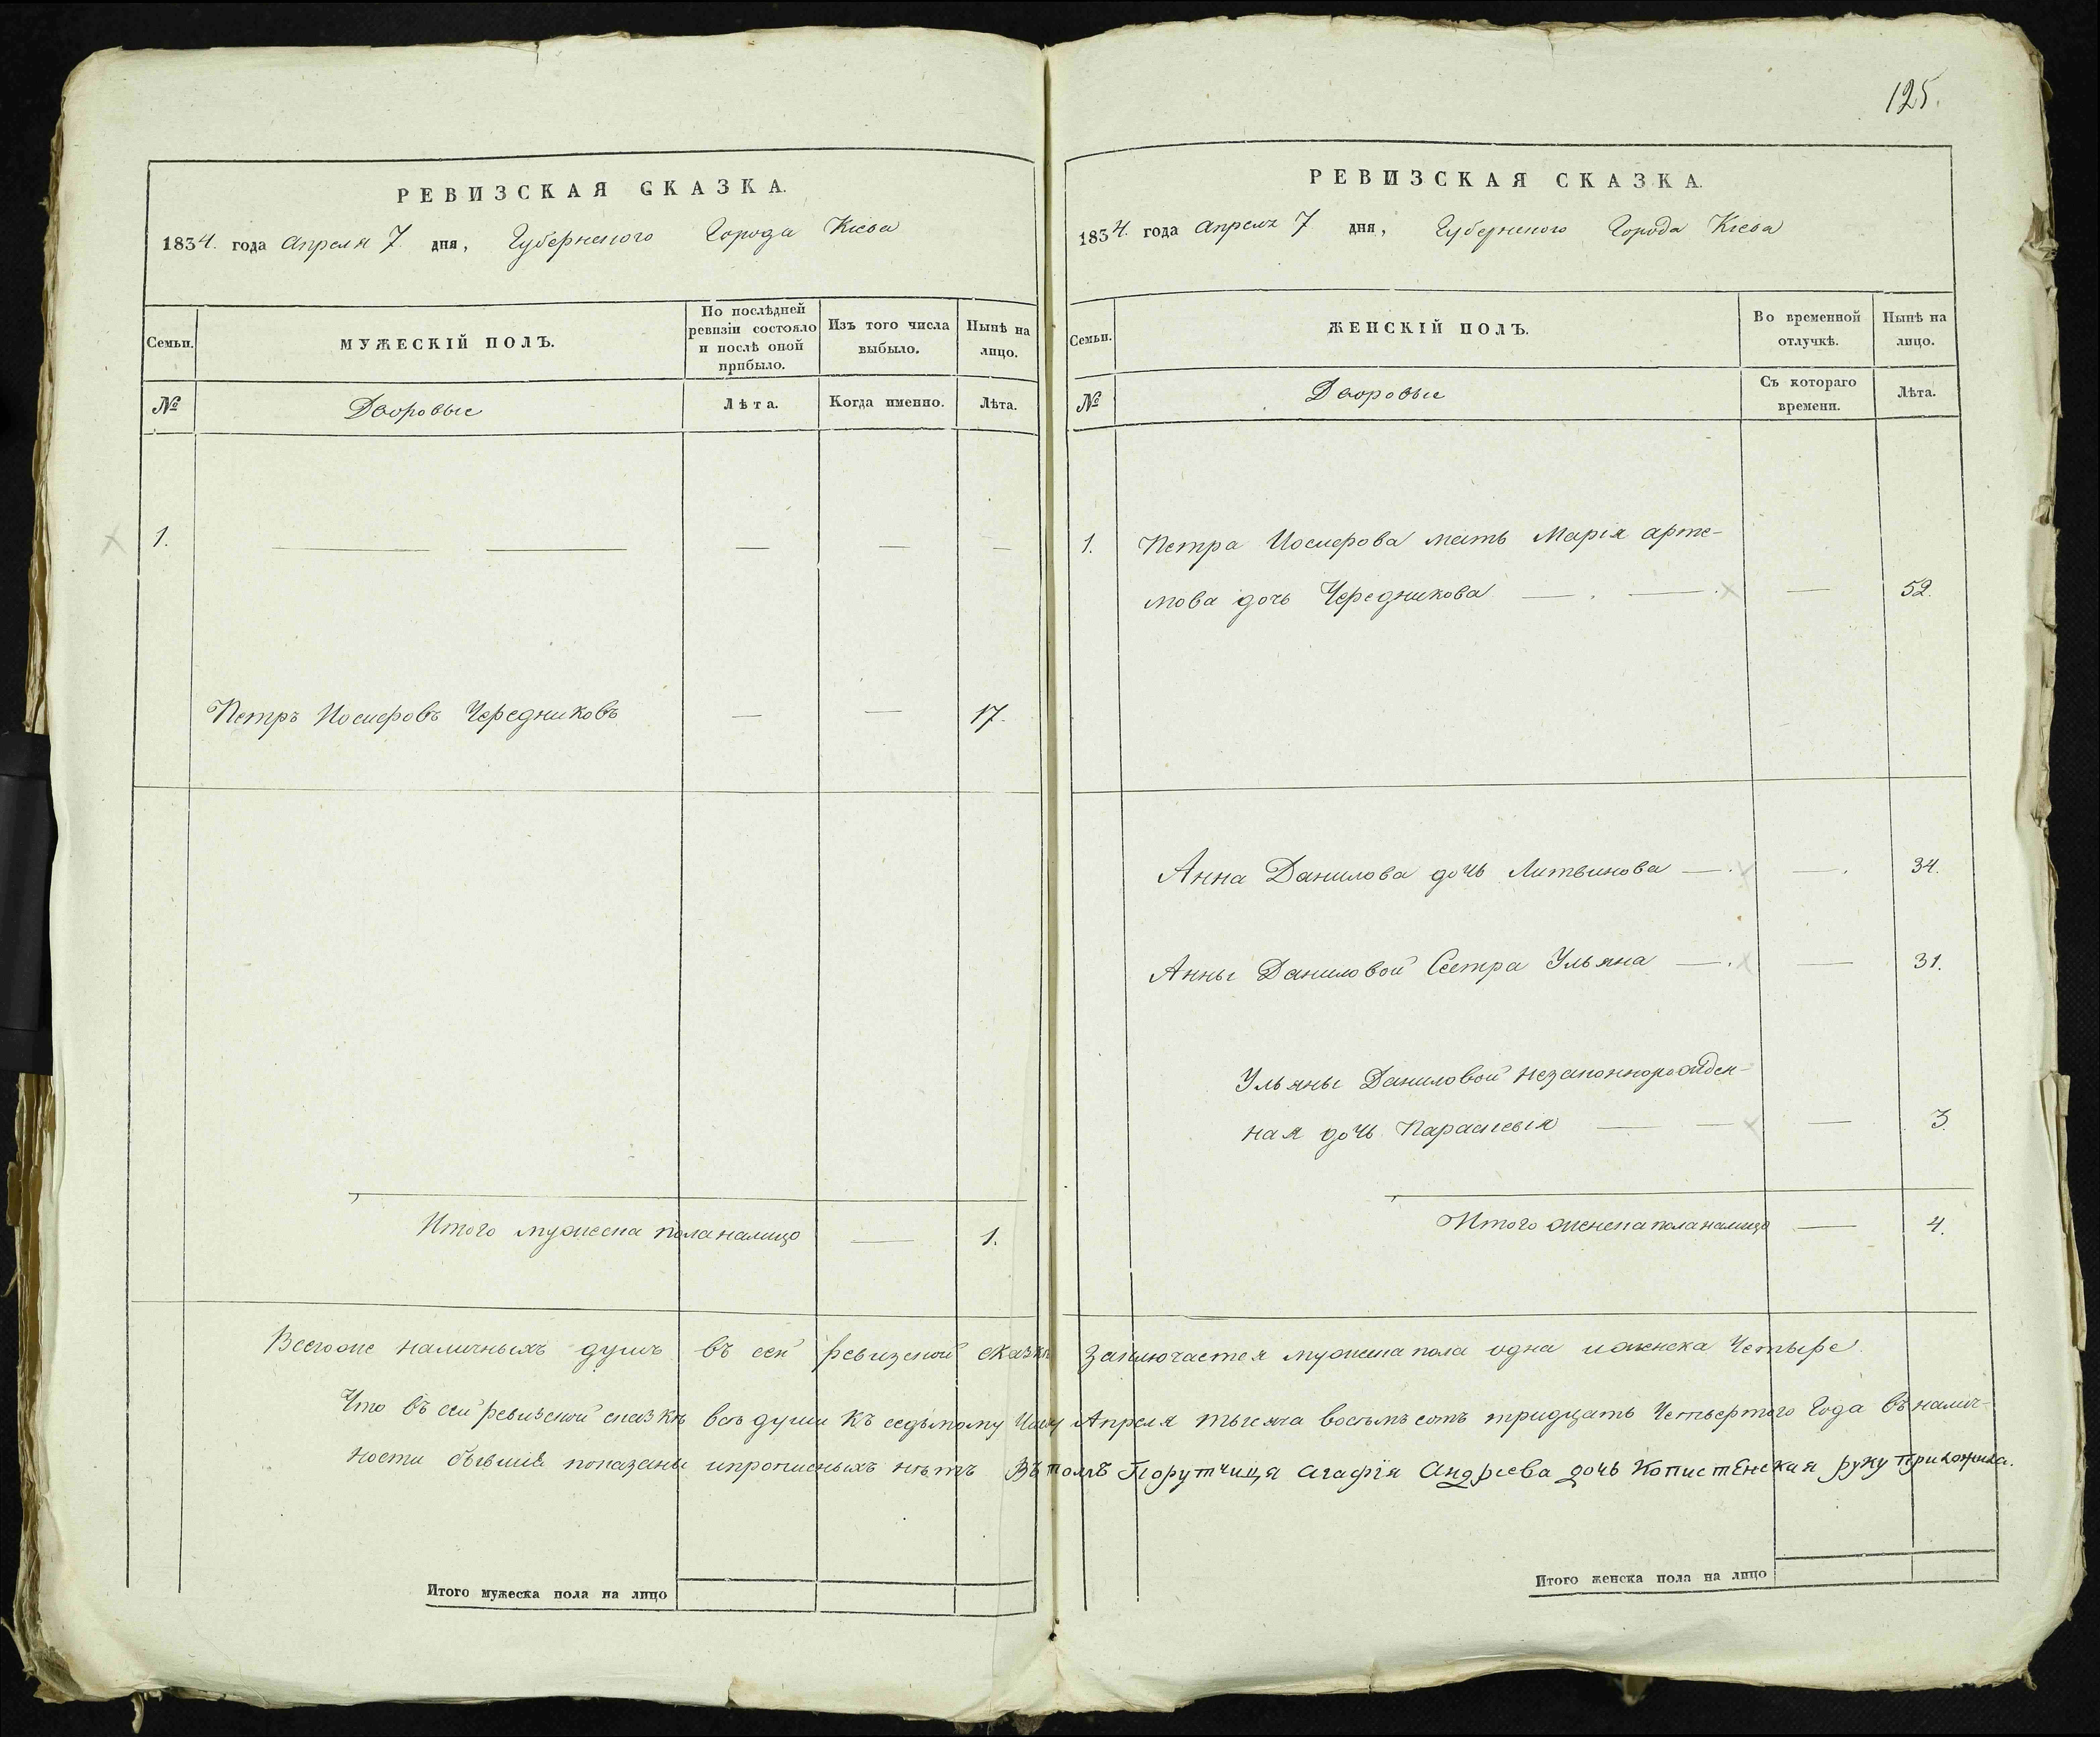 125.
РЕВИЗСКАЯ СКАЗКА.
1834. года Апреля 7. дня, Губернского Города Кіева
Семьи.
МУЖЕСКІЙ ПОЛЪ.
По послѣдней ревизіи состояло и послѣ оной прибыло.
Изъ того числа выбыло.
Нынѣ на лицо.
№
Дворовые
Лѣта.
Когда именно.
Лѣта.
1. — — — — —
Петръ Иосифовъ Чередниковъ — — 17.
Итого мужеска пола налицо — 1.
РЕВИЗСКАЯ СКАЗКА.
1834. года Апреля 7 дня, Губернского Города Кіева
Семьи.
ЖЕНСКІЙ ПОЛЪ.
Во временной отлучкѣ.
Нынѣ на лицо.
№
Дворовые
Съ котораго времени.
Лѣта.
1. Петра Иосифова мать Марія арте-
мова дочь Чередникова — . — . — 52.
Анна Данилова дочь Литвинова — . — . 34.
Анны Даниловой Сестра Ульяна — . — 31.
Ульяны Даниловой незаконнорожден-
ная дочь Параскевія — — — 3.
Итого женска пола налицо — 4.
Всегоже наличныхъ душъ въ сей ревизской сказкѣ заключается мужеска пола одна и женска Четыре.
Что въ сей ревизской сказкѣ всѣ души къ седьмому Числу Апреля тысяча восемь сотъ тридцать Четвертого Года въ налич-
ности бывшие показаны и прописныхъ нѣтъ Въ томъ Порутчица Агафія Андреева дочь Копистенская руку приложила.
Итого мужеска пола на лицо
Итого женска пола на лицо